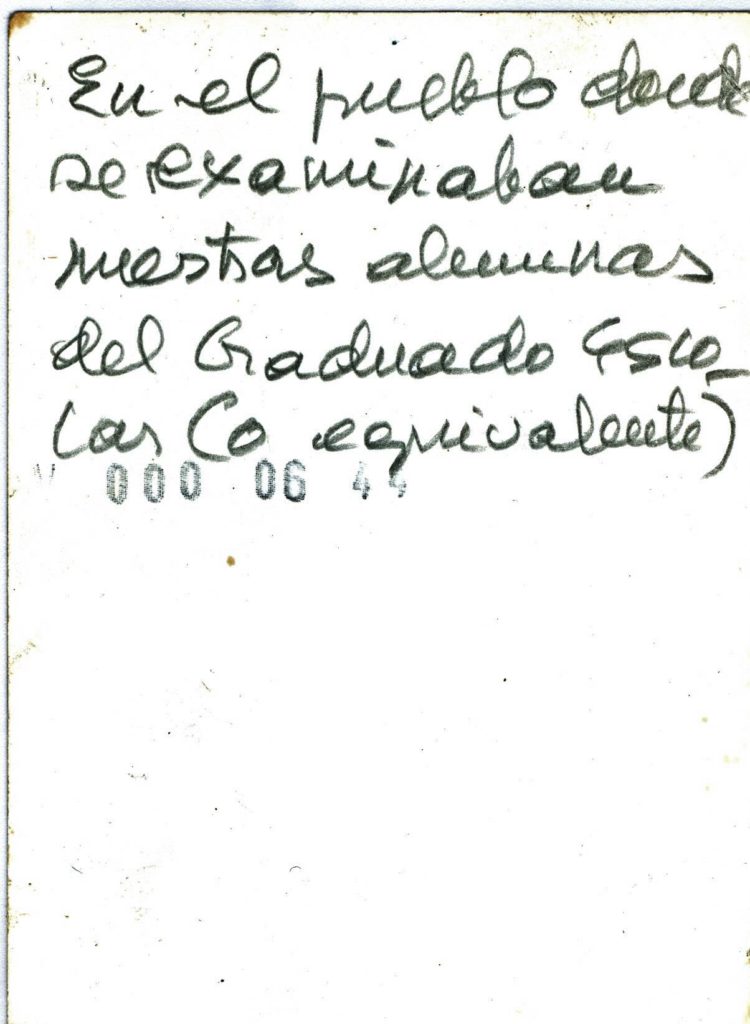 En el pueblo donde
se examinaban
nuestras alumnas
del Graduado Esco-
lar (o equivalente)
000 06 44